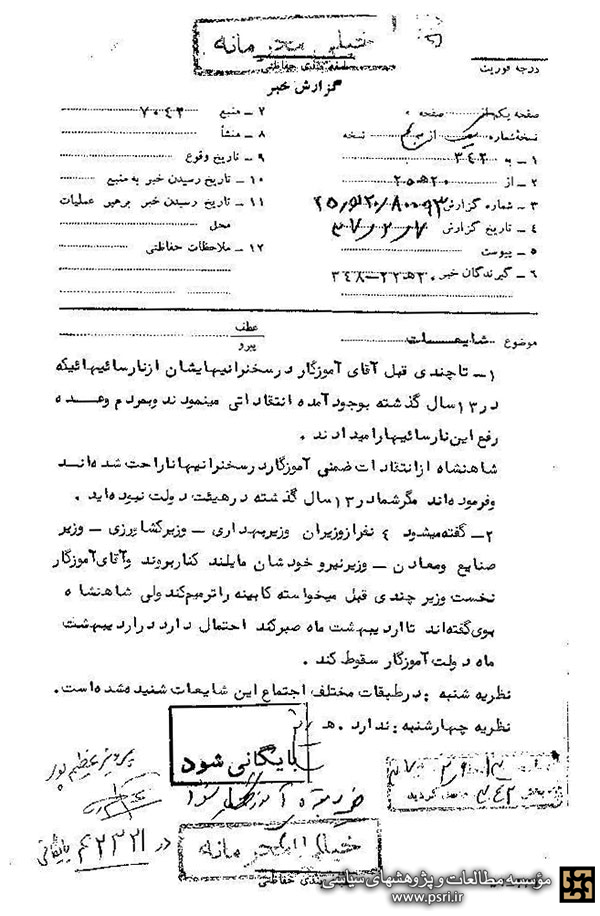 خیلی محرمانه
طبقه‌بندی حفاظتی
درجه فوریت
گزارش خبر
صفحه یک از صفحه
نسخهٔ شماره از نسخه
۱ ـ به ۳۴۲
۲ ـ از ۲۰ ه ۲۵
۳ ـ شماره گزارش
۴ ـ تاریخ گزارش ۳۷/۲/۷
۵ ـ پیوست
۶ ـ گیرندگان خبر ۲۰ ه ۲۲ ـ ۳۴۸
۷ ـ منبع ۷۰۴۲
۸ ـ منشأ
۹ ـ تاریخ وقوع
۱۰ ـ تاریخ رسیدن خبر به منبع
۱۱ ـ تاریخ رسیدن خبر برهبر عملیات
محل
۱۲ ـ ملاحظات حفاظتی
موضوع شایعات
عطف
پیرو
۱ ـ تا چندی قبل آقای آموزگار در سخنرانیهایشان از نارسائیهائیکه
در ۱۳ سال گذشته بوجود آمده انتقاداتی مینمودند و بمردم وعده
رفع این نارسائیها را میدادند .
شاهنشاه از انتقادات ضمنی آموزگار در سخنرانیها ناراحت شده‌اند
و فرموده‌اند مگر شما در ۱۳ سال گذشته در هیئت دولت نبوده‌اید .
۲ ـ گفته میشود ٤ نفر از وزیران وزیر بهداری ـ وزیر کشاورزی ـ وزیر
صنایع و معادن ـ وزیر نیرو خودشان مایلند کنار بروند و آقای آموزگار
نخست وزیر چندی قبل میخواسته کابینه را ترمیم کند ولی شاهنشاه
بوی گفته‌اند تا اردیبهشت ماه صبر کند احتمال دارد در اردیبهشت
ماه دولت آموزگار سقوط کند .
نظریه شنبه : در طبقات مختلف اجتماع این شایعات شنیده شده است .
نظریه چهارشنبه : ندارد . ه
بایگانی شود
پرویز عظیم پور
در ۴۲۳۲۱ بایگانی
بخش ۳۴۲ واصل گردید
خیلی محرمانه
طبقه‌بندی حفاظتی
مؤسسه مطالعات و پژوهشهای سیاسی
www.psri.ir